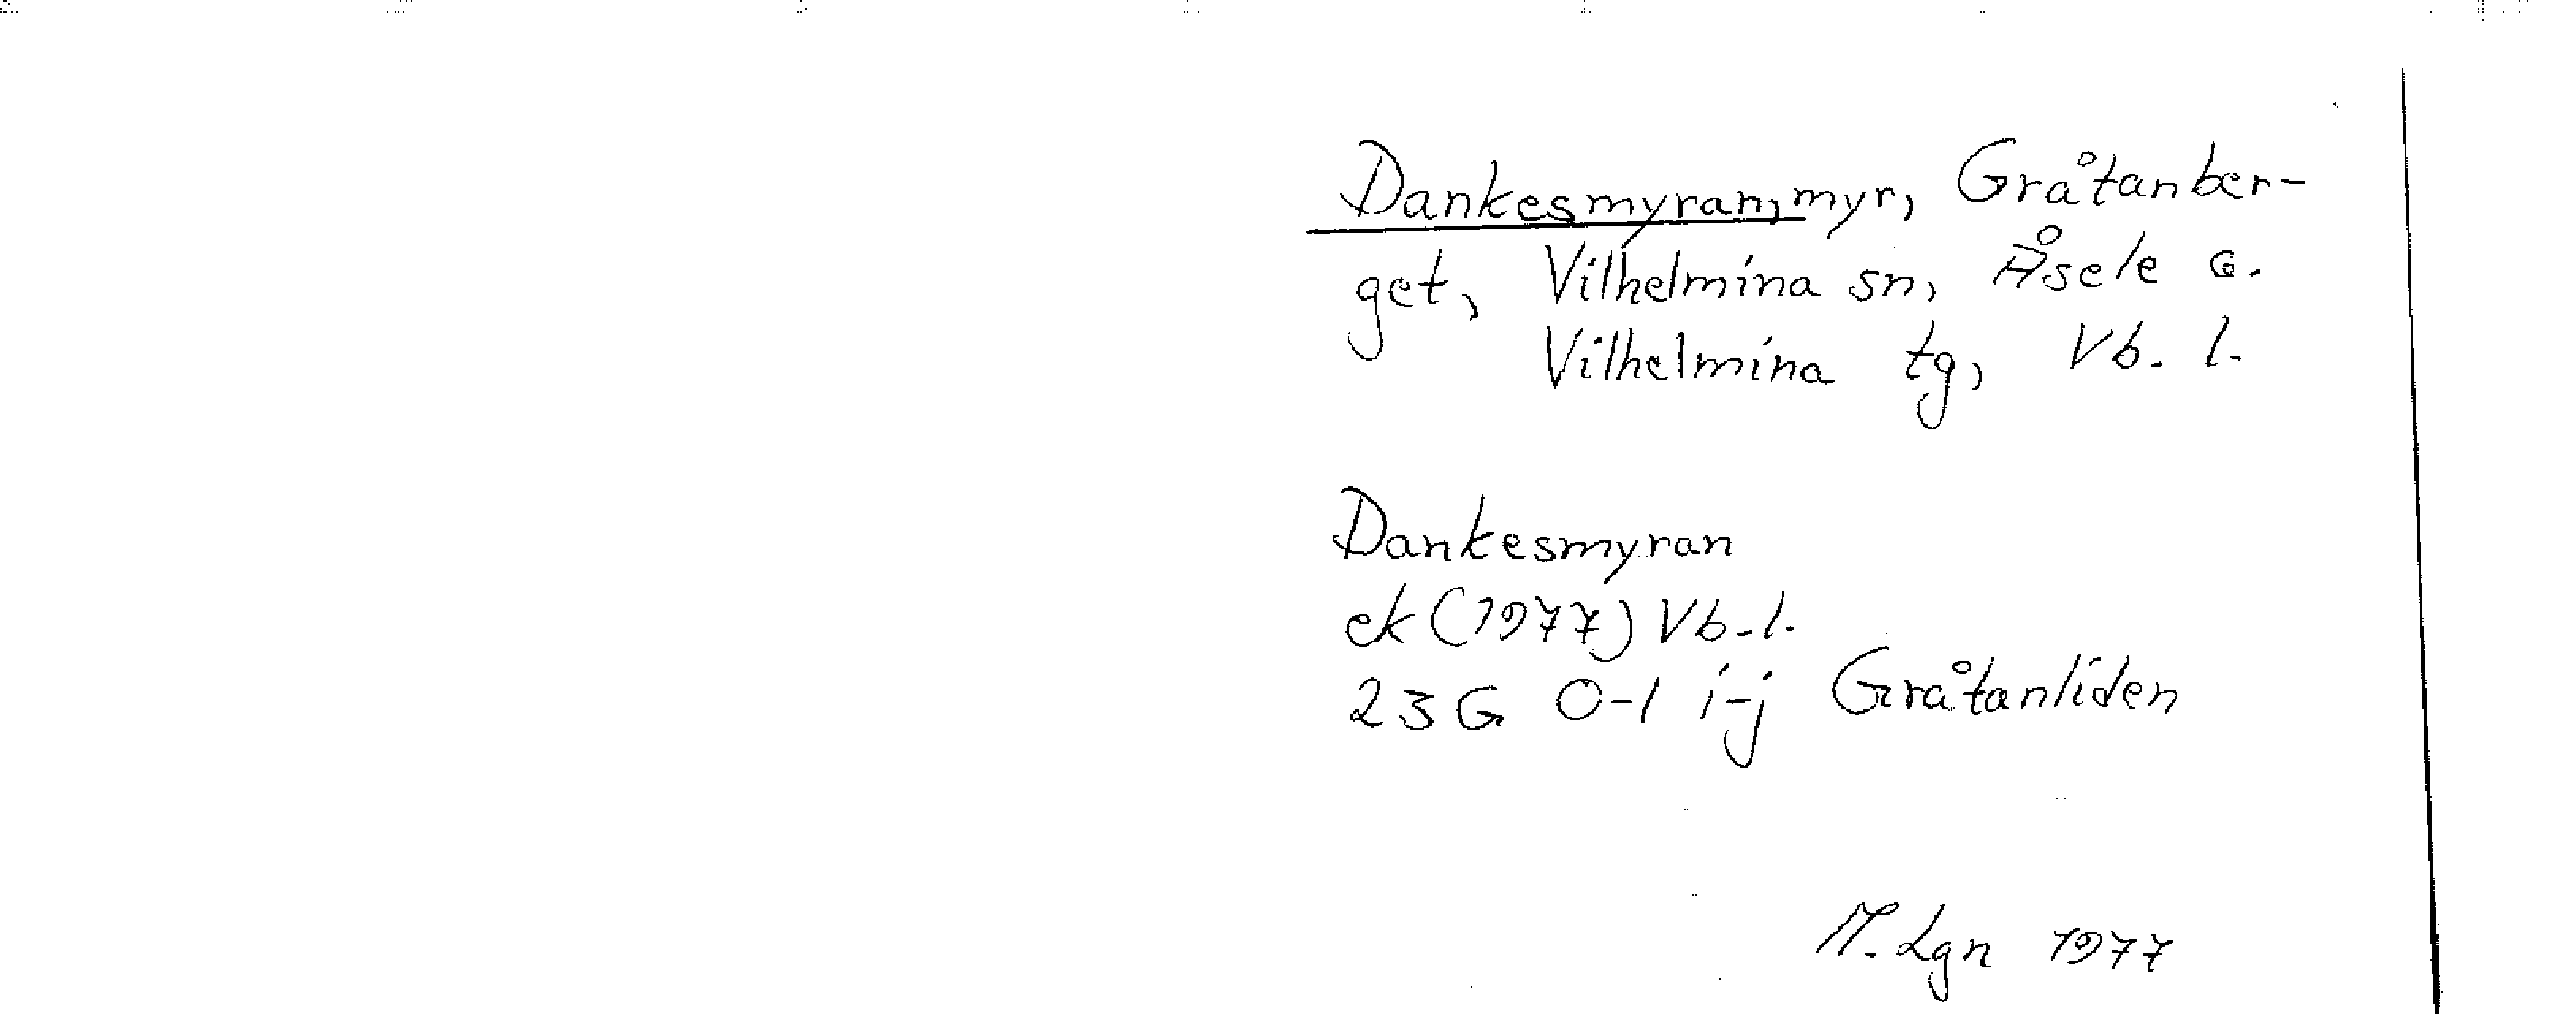 Dankesmyran, myr, Gråtanber-
get, Vilhelmina sn, Åsele G.
Vilhelmina tg, Vb. l.
Dankesmyran
ek (1977) Vb. l.
23 G 0-1 i-j Gråtanliden
M. Lgn 1977